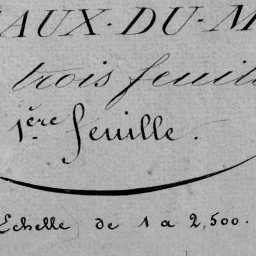 AUX·DU·M
trois feuill
1ère feuille.
Echelle de 1 a 2,500.